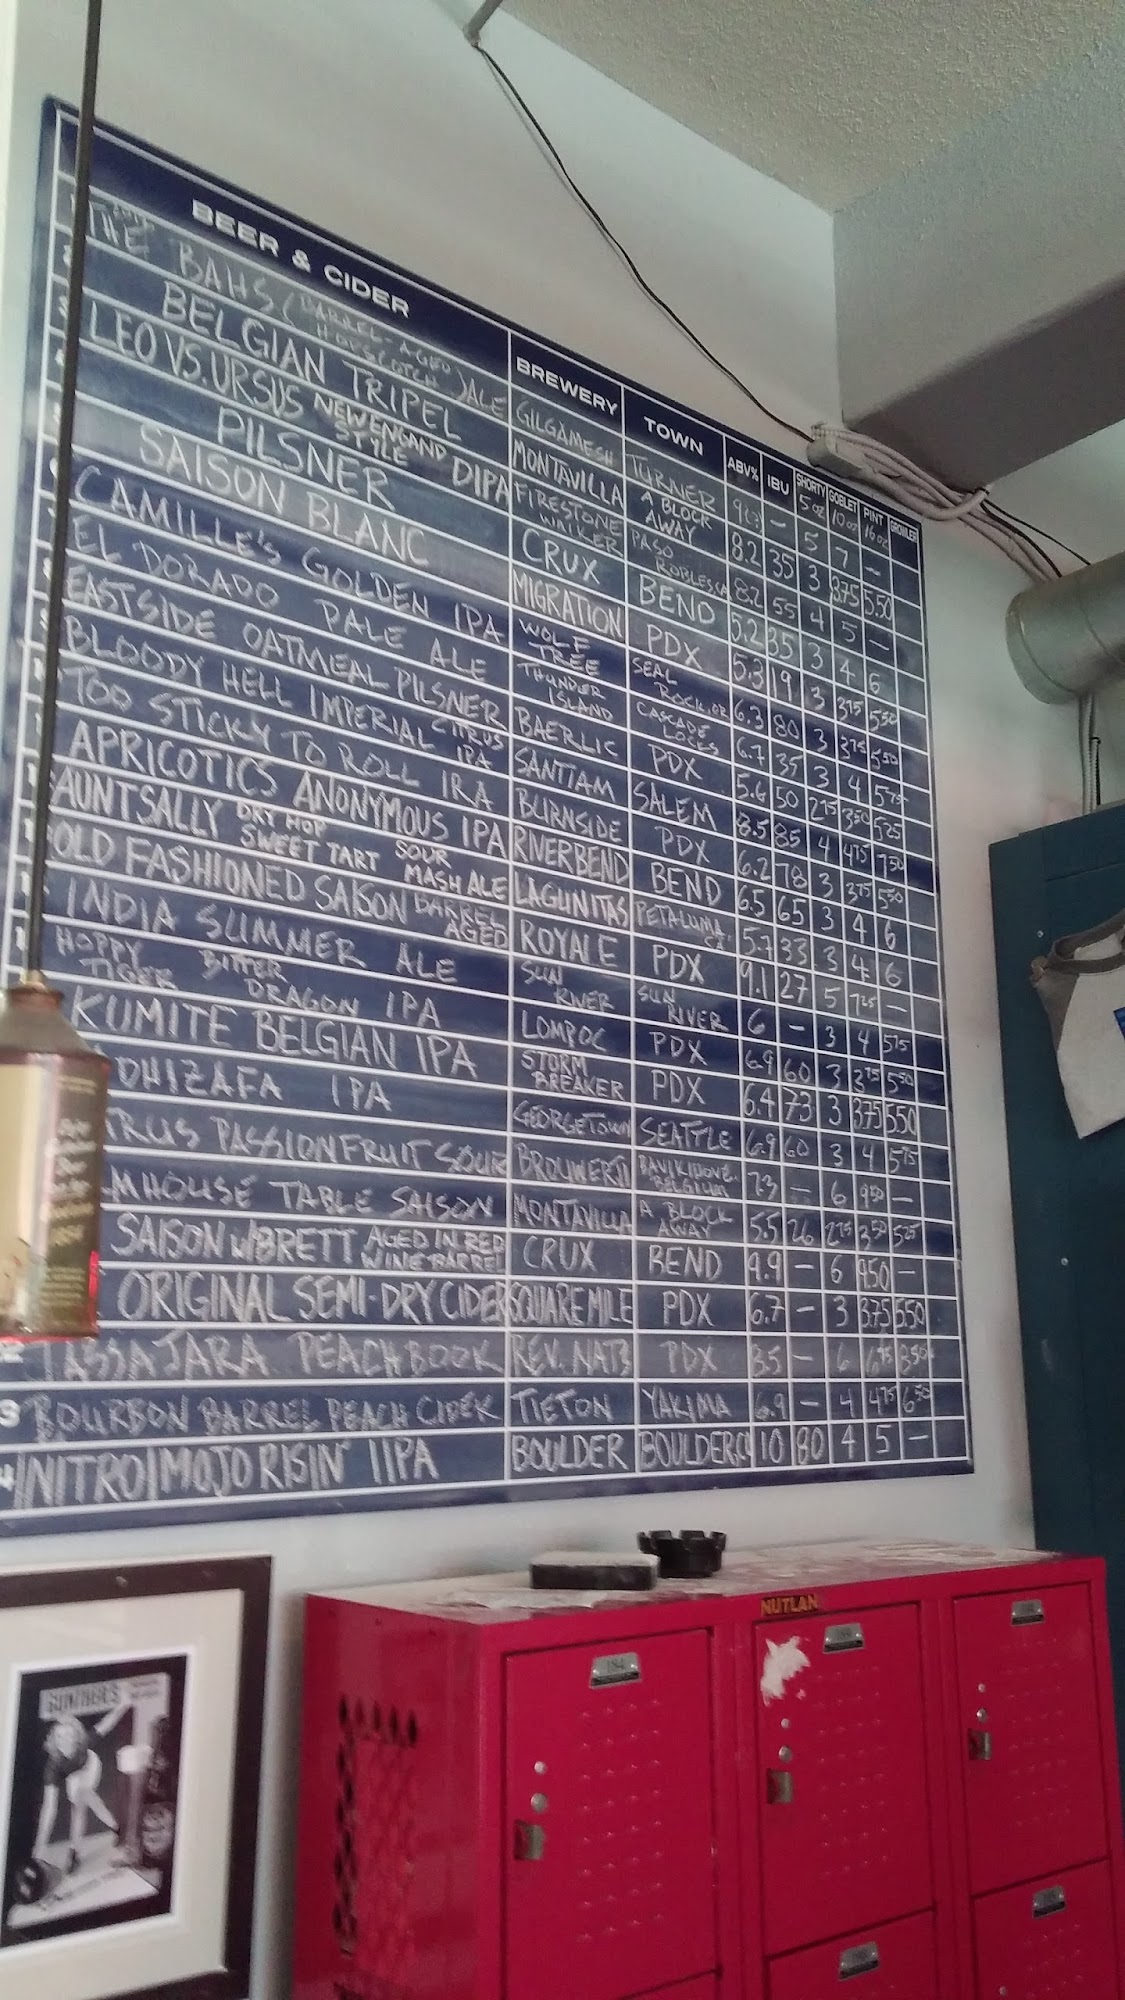 BEER & CIDER BREWERY TOWN ABV% IBU SHORTY 5 oz GOBLET 10 oz PINT 16 oz GROWLER
THE BAHS (BARREL-AGED HOPSCOTCH) ALE GILGAMESH TURNER — 5 7 —
BELGIAN TRIPEL MONTAVILLA A BLOCK AWAY 8.2 35 3 3.75 5.50
LEO VS. URSUS NEW ENGLAND STYLE DIPA FIRESTONE WALKER PASO ROBLES CA 8.2 55 4 5 —
PILSNER CRUX BEND 5.2 35 3 4 6
SAISON BLANC MIGRATION PDX 5.3 19 3 3.75 5.50
CAMILLE'S GOLDEN IPA WOLF TREE SEAL ROCK, OR 6.3 80 3 3.75 5.50
EL DORADO PALE ALE THUNDER ISLAND CASCADE LOCKS 6.7 35 3 4 5.75
EASTSIDE OATMEAL PILSNER BAERLIC PDX 5.6 50 2.75 3.50 5.25
BLOODY HELL IMPERIAL CITRUS IPA SANTIAM SALEM 8.5 85 4 4.75 7.50
TOO STICKY TO ROLL IRA BURNSIDE PDX 6.2 78 3 3.75 5.50
APRICOTICS ANONYMOUS IPA RIVERBEND BEND 6.5 65 3 4 6
AUNT SALLY DRY HOP SWEET TART SOUR MASH ALE LAGUNITAS PETALUMA, CA. 5.7 33 3 4 6
OLD FASHIONED SAISON BARREL AGED ROYALE PDX 9.1 27 5 7.25 —
INDIA SUMMER ALE SUN RIVER SUN RIVER 6 — 3 4 5.75
HOPPY TIGER BITTER DRAGON IPA LOMPOC PDX 6.9 60 3 3.75 5.50
KUMITE BELGIAN IPA STORM BREAKER PDX 6.4 73 3 3.75 5.50
DHIZAFA IPA GEORGETOWN SEATTLE 6.9 60 3 4 5.75
TRUS PASSIONFRUIT SOUR BROUWERIJ BELGIUM 7.3 — 6 9.50 —
MHOUSE TABLE SAISON MONTAVILLA A BLOCK AWAY 5.5 26 2.75 3.50 5.25
SAISON W/BRETT AGED IN RED WINE BARREL CRUX BEND 9.9 — 6 9.50 —
ORIGINAL SEMI-DRY CIDER SQUARE MILE PDX 6.7 — 3 3.75 5.50
TASSAJARA PEACHBOOK REV. NAT'S PDX — 6 6.75 8.50
3 BOURBON BARREL PEACH CIDER TIETON YAKIMA 6.9 — 4 4.75 6.50
4 |NITRO| MOJO RISIN' IIPA BOULDER BOULDER, CO 10 80 4 5 —
NUTLAN
184